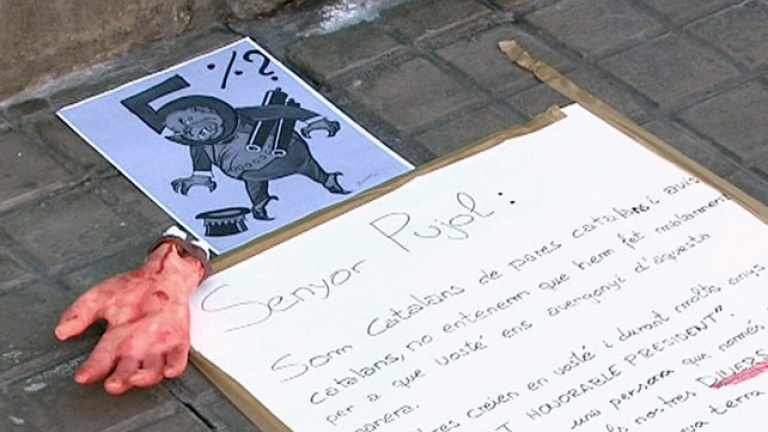 5%?
Senyor Pujol:
Som catalans de pares catalans i avis
catalans, no entenem que hem fet malament
per a que vosté ens avergonyi d'aquesta
manera.
creien en vosté i durant molts anys
HONORABLE PRESIDENT".
una persona que només
els nostres DIVERS
terra